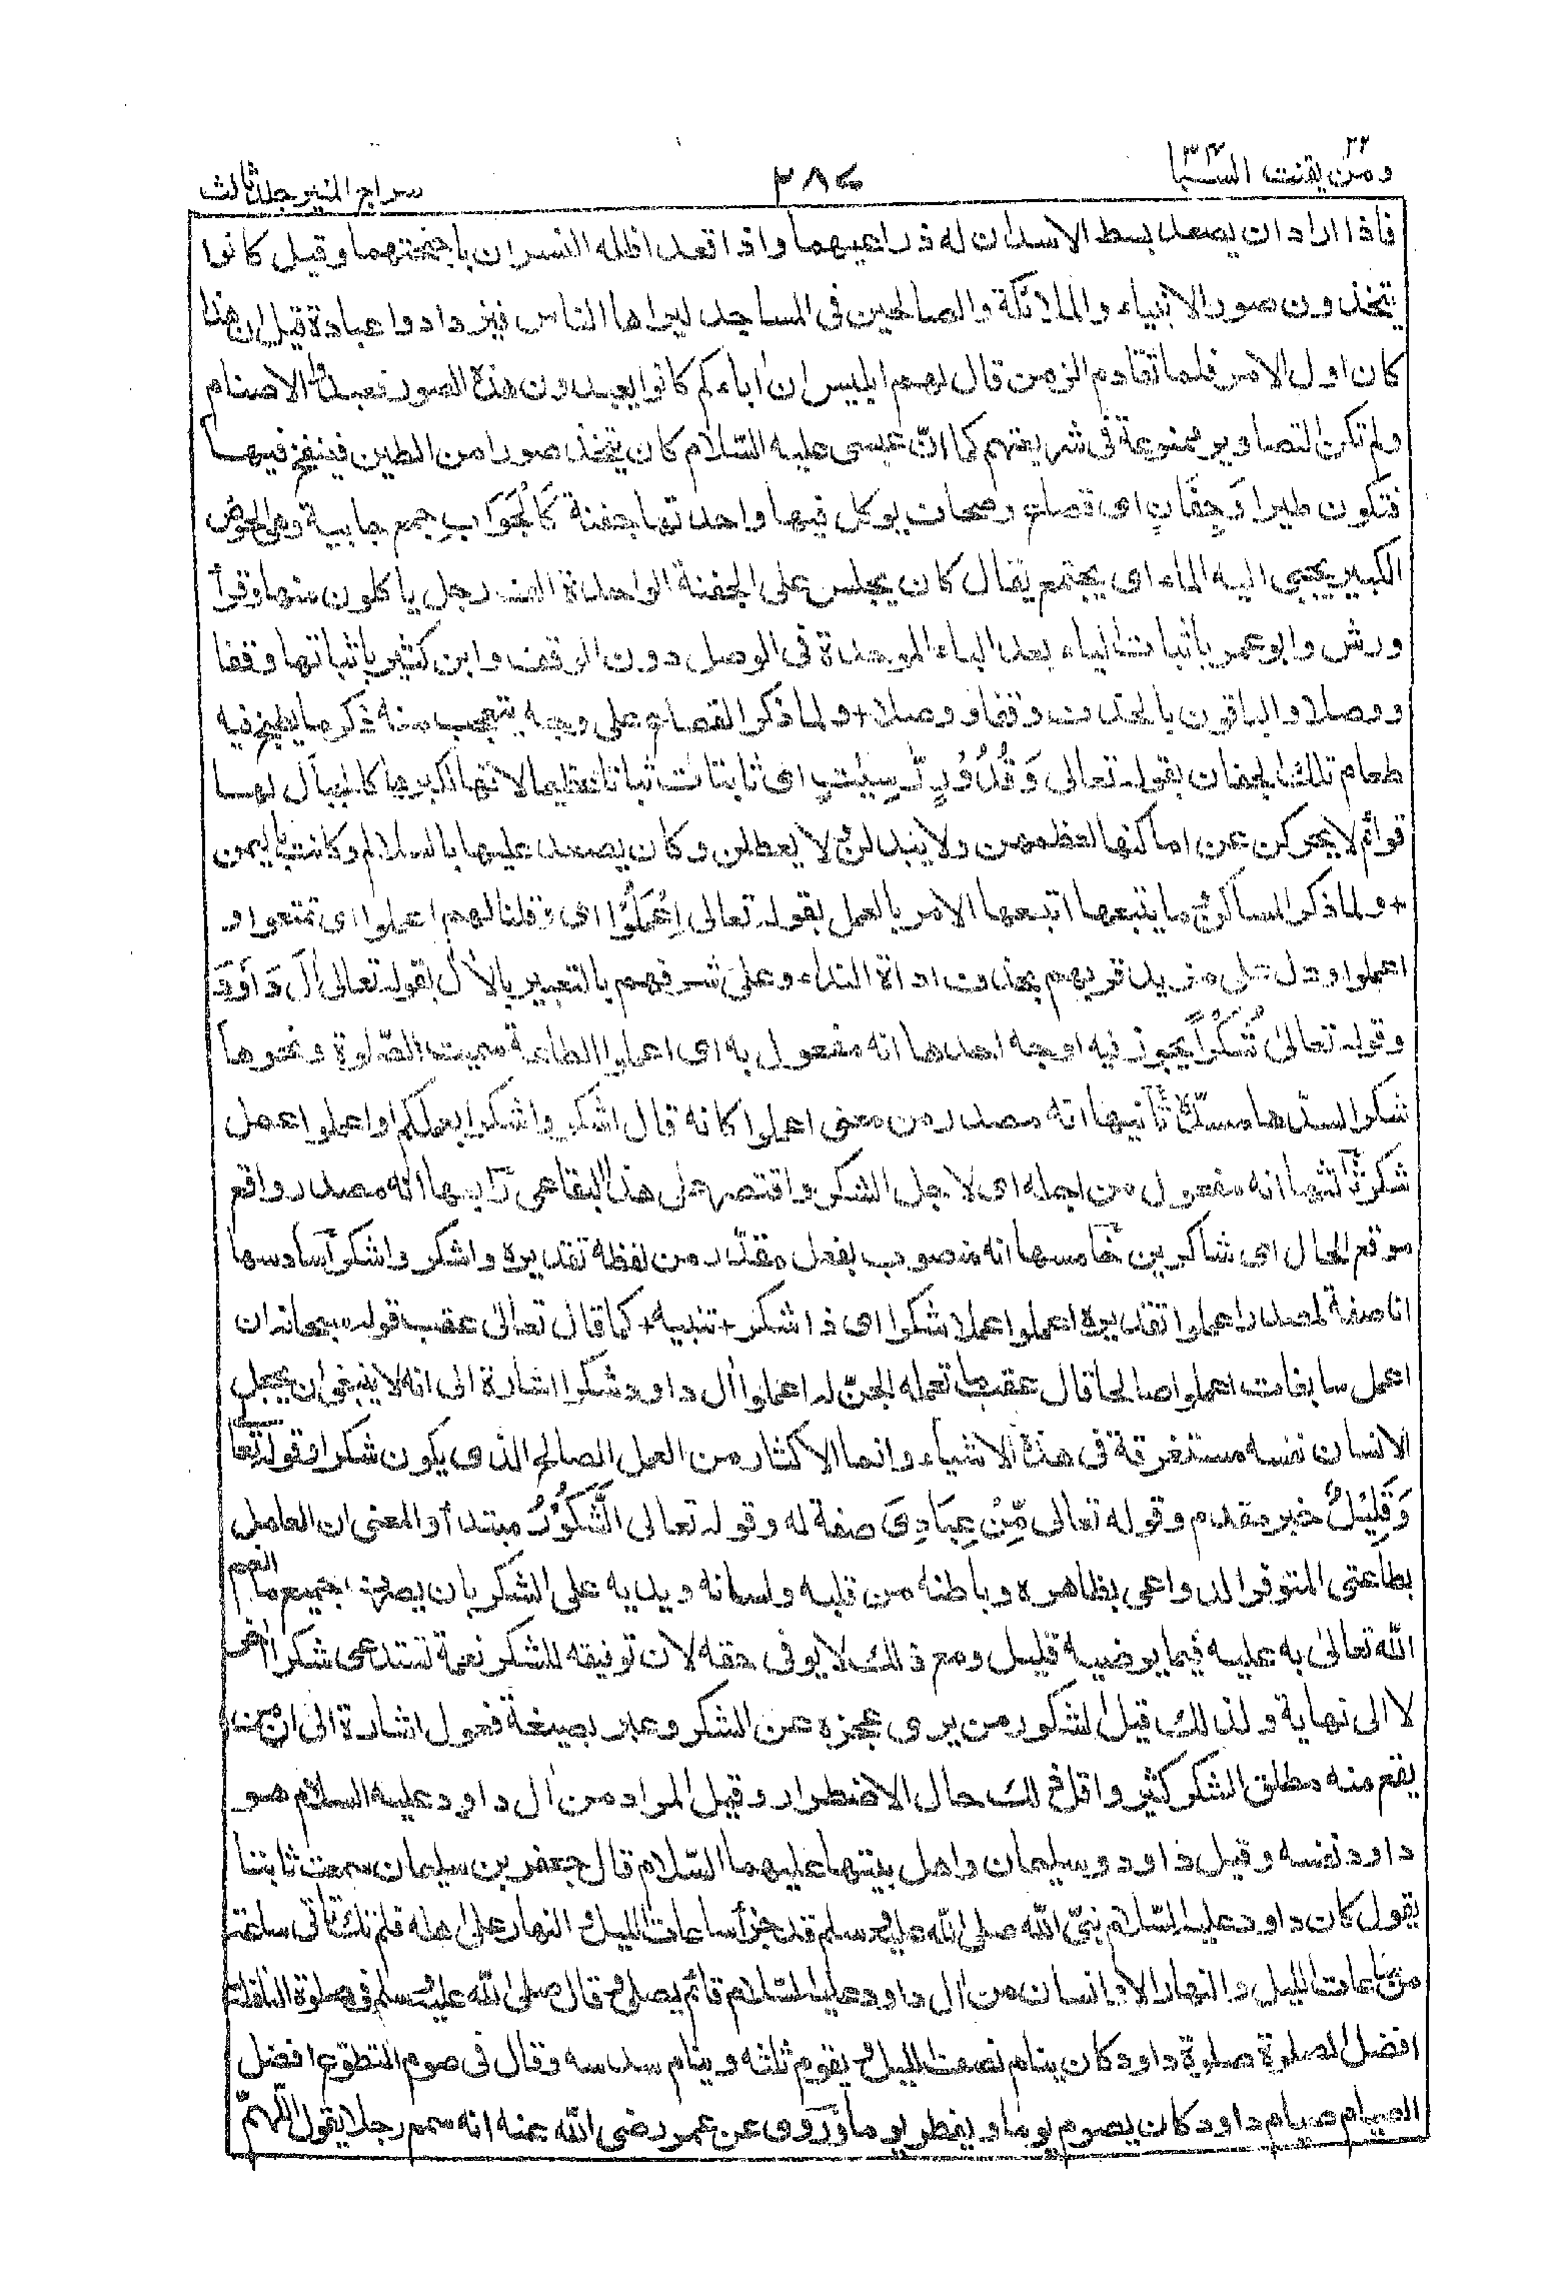 ومن يقنت ٢٢ السبا ٣٤
٢٨٧
سراج المنير جلد ثالث
فاذا اراد ان يصعد بسط الاسدان له ذراعيهما واذا قعد اظله النسران باجنحتهما وقيل كانوا
يتخذون صور الانبياء والملائكة والصالحين فى المساجد ليراها الناس فيزدادوا عبادة قيل ان هذا
كان اول الامر فلما تقادم الزمن قال لهم ابليس ان اباءكم كانوا يعبدون هذه الصور فعبدوا الاصنام
ولم تكن التصاوير ممنوعة فى شريعتهم كما انّ عيسى عليه السّلام كان يتخذ صورا من الطين فينفخ فيها
فتكون طيرا وَجِفَانٍ اى قصاع وصحاف يوكل فيها واحدتها جفنة كَالْجَوَابِ جمع جابية وهى الحوض
الكبير يجبى اليه الماء اى يجتمع يقال كان يجلس على الجفنة الواحدة الف رجل ياكلون منها وقرأ
ورش وابو عمر باثبات الياء بعد الباء الموحدة فى الوصل دون الوقف وابن كثير باثباتها وقفا
ووصلا والباقون بالحذف وقفا ووصلا + ولما ذكر القصاع على وجه يتعجب منه ذكر ما يطبخ فيه
طعام تلك الجفان بقوله تعالى وَقُدُوْرٍ رّٰسِيٰتٍ اى ثابتات ثباتا عظيما لانها لكبرها كالجبال لها
قوائم لا يتحركن عن اماكنها لعظمهن ولا يبدلن ولا يعطلن وكان يصعد عليها بالسلالم وكانت باليمن
+ ولما ذكر المساكن وما يتبعها اتبعها الامر بالعمل بقوله تعالى اِعْمَلُوْا اى وقلنا لهم اعملوا اى تمتعوا و
اعملوا ودل على مزيد قربهم بحذف اداة النداء وعلى شرفهم بالتعبير بالاٰل بقوله تعالى اٰلَ دَاوٗدَ
وقوله تعالىٰ شُكْرًا يجوز فيه اوجه احدها انه مفعول به اى اعملوا الطاعة سميت الصّلوة ونحوها
شكرا لسدّها مسدّه ثانيها انه مصدر من معنى اعملوا كانه قال اشكروا شكرا بعملكم او اعملوا عمل
شكر ثالثها انه مفعول من اجله اى لاجل الشكر واقتصر على هذا البقاعى رابعها انه مصدر واقع
موقع الحال اى شاكرين خامسها انه منصوب بفعل مقدّر من لفظه تقديره واشكروا شكرا سادسها
انه صفة لمصدر اعملوا تقديره اعملوا عملا شكرا اى ذا شكر + تنبيه + كما قال تعالىٰ عقب قوله سبحانه ان
اعمل سابغات اعملوا صالحا قال عقب ما تعمله الجنّ له اعملوا اٰل داود شكرا اشارة الى انه لا ينبغى ان يجعل
الانسان نفسه مستغرقة فى هذه الاشياء وانما الاكثار من العمل الصالح الذى يكون شكرا وقوله تعا
وَقَلِيْلٌ خبر مقدم وقوله تعالى مِّنْ عِبَادِىَ صفة له وقوله تعالى الشَّكُوْرُ مبتدأ والمعنى ان العامل
بطاعتى المتوفر الدواعى بظاهره وباطنه من قلبه ولسانه ويديه على الشكر بان يصرف جميع ما انعم
اللّٰه تعالىٰ به عليه فيما يرضيه قليل ومع ذلك لا يوفى حقه لان توفيقه للشكر نعمة تستدعى شكرا اٰخر
لا الى نهاية ولذلك قيل الشكور من يرى عجزه عن الشكر وعبر بصيغة فعول اشارة الى ان من
يقع منه مطلق الشكر كثير واقل ذلك حال الاضطرار وقيل المراد من اٰل داود عليه السلام هو
داود نفسه وقيل داود وسليمان واهل بيتهما عليهما السّلام قال جعفر بن سليمان سمعت ثابتا
يقول كان داود عليه السّلام نبىّ اللّٰه صلى اللّٰه عليه وسلم قد جزأ ساعات الليل والنهار على اهله فلم تك تاتى ساعة
من ساعات الليل والنهار الا وانسان من اٰل داود عليه السّلام قائم يصلى وقال صلى اللّٰه عليه وسلم فى صلوة النافلة
افضل الصلوة صلوة داود كان ينام نصف الليل ويقوم ثلثه وينام سدسه وقال فى صوم التطوّع افضل
الصيام صيام داود كان يصوم يوما ويفطر يوما وروى عن عمر رضى اللّٰه عنه انه سمع رجلا يقول اللّٰهمّ